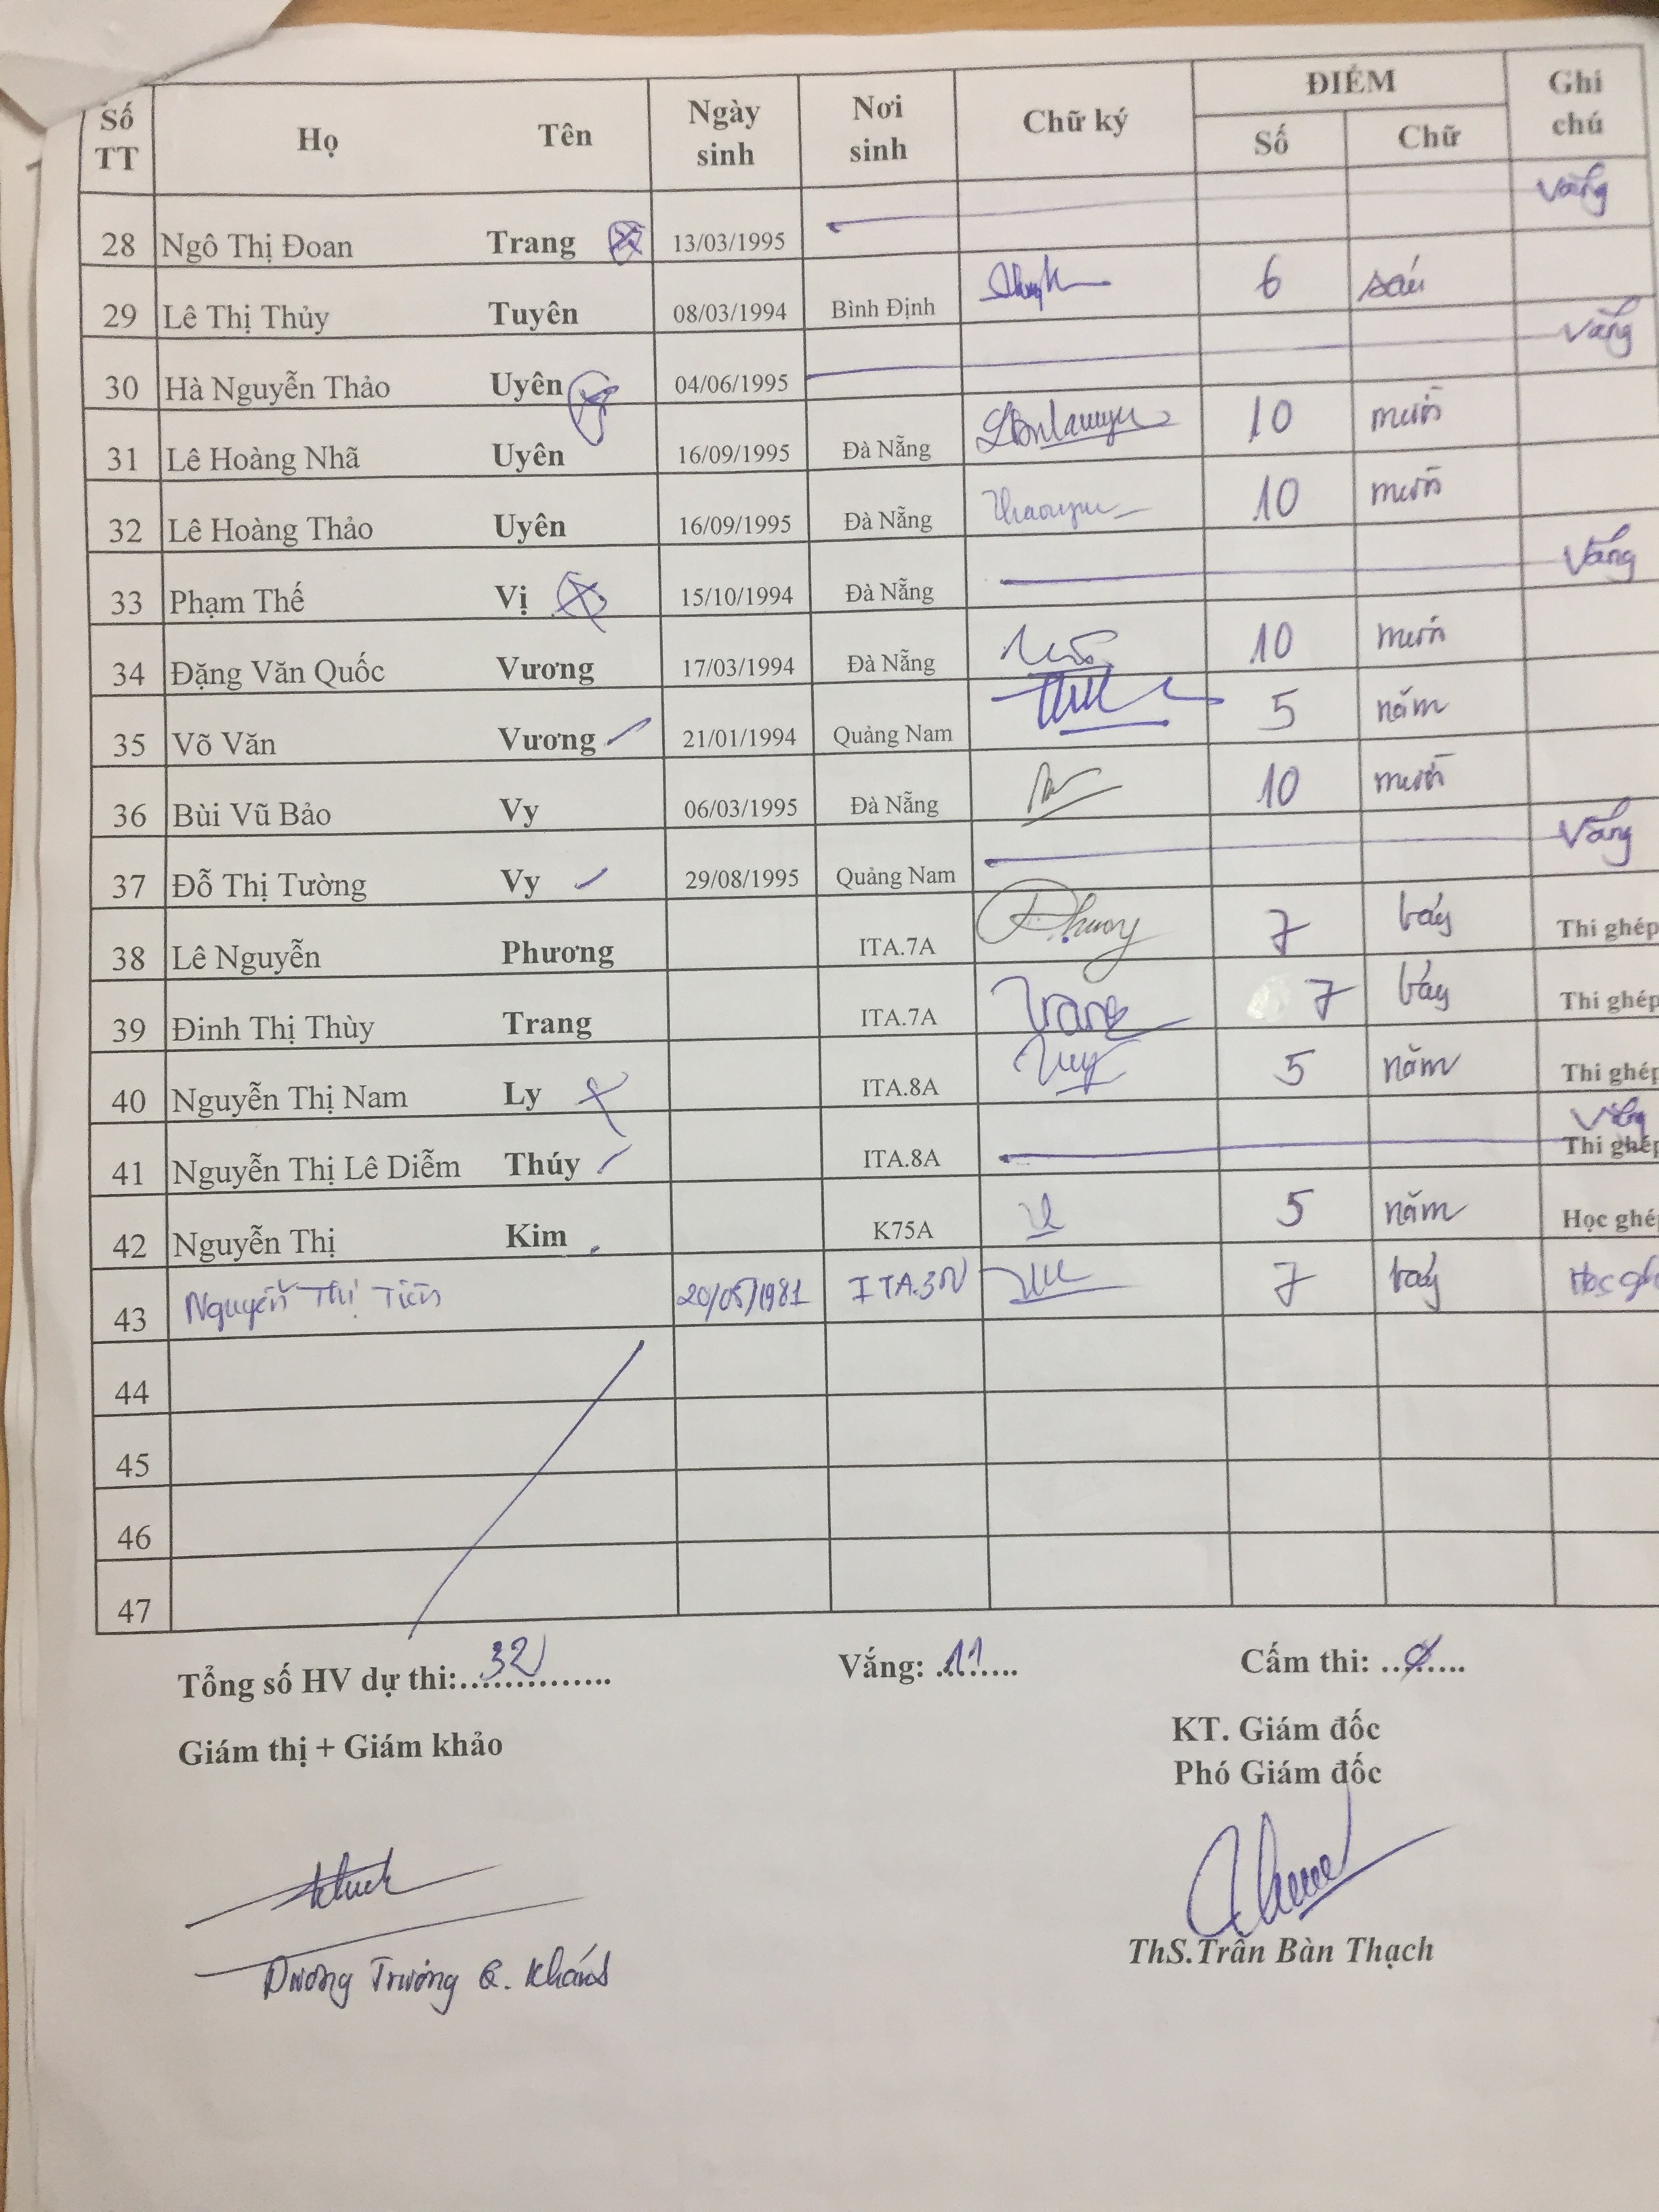 Số TT Họ Tên Ngày sinh Nơi sinh Chữ ký ĐIỂM Số Chữ Ghi chú
28 Ngô Thị Đoan Trang 13/03/1995 Vắng
29 Lê Thị Thủy Tuyên 08/03/1994 Bình Định 6 sáu
30 Hà Nguyễn Thảo Uyên 04/06/1995 Vắng
31 Lê Hoàng Nhã Uyên 16/09/1995 Đà Nẵng 10 mười
32 Lê Hoàng Thảo Uyên 16/09/1995 Đà Nẵng Thaouyen 10 mười
33 Phạm Thế Vị 15/10/1994 Đà Nẵng Vắng
34 Đặng Văn Quốc Vương 17/03/1994 Đà Nẵng 10 mười
35 Võ Văn Vương 21/01/1994 Quảng Nam 5 năm
36 Bùi Vũ Bảo Vy 06/03/1995 Đà Nẵng 10 mười
37 Đỗ Thị Tường Vy 29/08/1995 Quảng Nam Vắng
38 Lê Nguyễn Phương ITA.7A Phương 7 bảy Thi ghép
39 Đinh Thị Thùy Trang ITA.7A Trang 7 bảy Thi ghép
40 Nguyễn Thị Nam Ly ITA.8A 5 năm Thi ghép
41 Nguyễn Thị Lê Diễm Thúy ITA.8A Vắng Thi ghép
42 Nguyễn Thị Kim K75A 5 năm Học ghép
43 Nguyễn Thị Tiên 20/05/1981 ITA.3N 7 bảy Học gh
44
45
46
47
Tổng số HV dự thi:...32... Vắng: ...11... Cấm thi: ...0...
Giám thị + Giám khảo KT. Giám đốc
Phó Giám đốc
Dương Trương Q. Khánh ThS.Trần Bàn Thạch